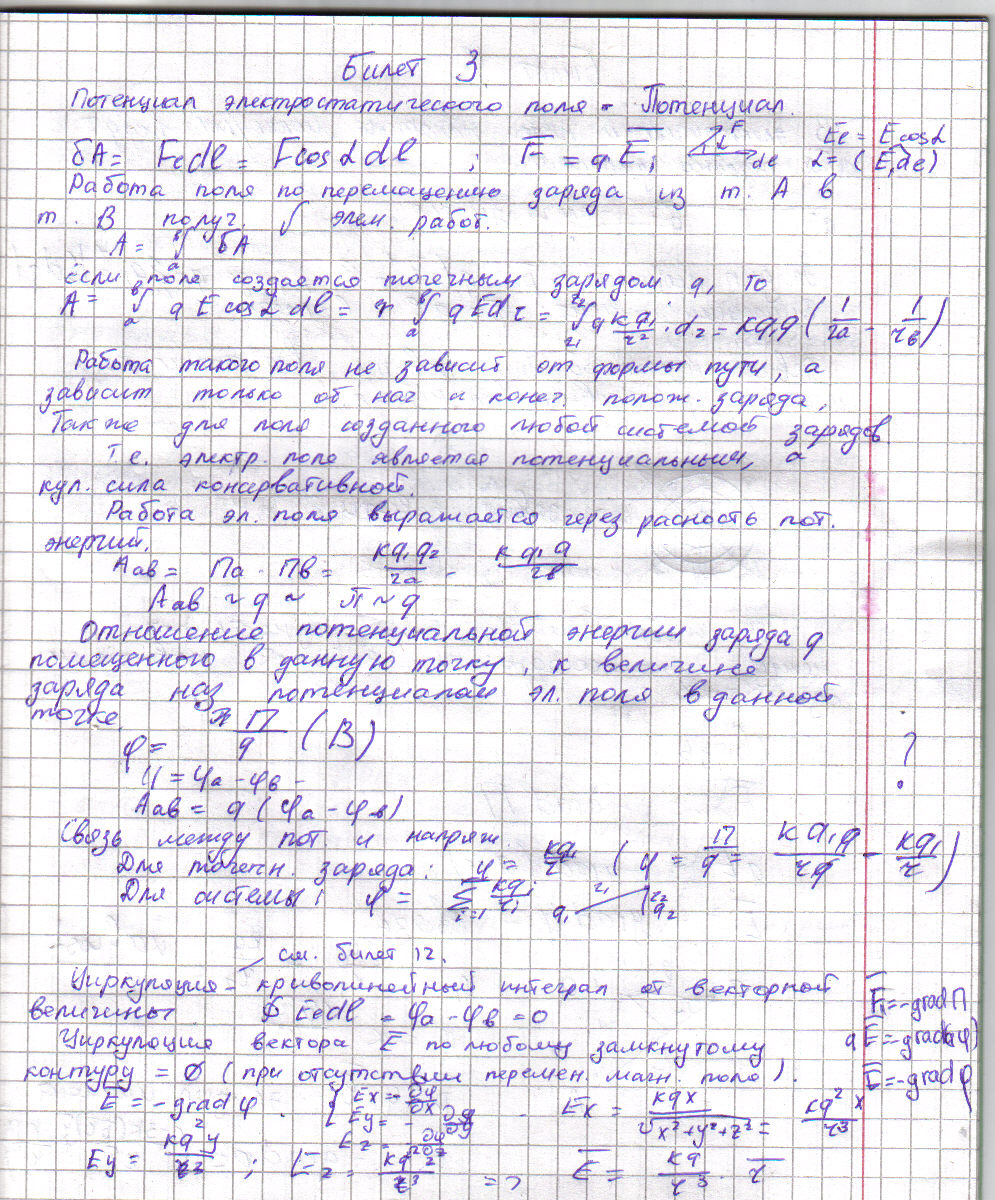 Билет 3
Потенциал электростатического поля - Потенциал.
δA = Fedl = Fcosαdl ; F̅ = qE̅; F α de Ee = Ecosα
α = (E,de)
Работа поля по перемещению заряда из т. А в
т. В получ. ∫ элем. работ.
A = ∫ab δA
Если поле создается точечным зарядом q1 то
A = ∫ab qEcosαdl = ∫ab qEdr = ∫r1r2 q kq1/r² · dr = kq1q (1/ra - 1/rв)
Работа такого поля не зависит от формы пути, а
зависит только об нач и конеч. полож. заряда,
Также для поля созданного любой системой зарядов
Т.е. электр. поле является потенциальным, а
кул. сила консервативной.
Работа эл. поля выражается через расность пот.
энергий.
Aав = Па - Пв = kq1q2/ra - kq1q/rв
Aав ~ q ~ П ~ q
Отношение потенциальной энергии заряда q
помещенного в данную точку, к величине
заряда наз потенциалам эл. поля в данной
точке.
φ = П/q (В) ?
U = φa - φв -
Aав = q(φa - φв)
Связь между пот. и напряж.
Для точечн. заряда: φ = kq1/r (φ = П/q = kq1q/rq - kq1/r)
Для системы: φ = Σi=1 kqi/ri q1 r1 r2 q2
см. билет 12.
Циркуляция - криволинейный интеграл от векторной
величины ∮Eedl = φa - φв = 0 F̅ = -gradП
Циркуляция вектора E̅ по любому замкнутому qE̅ = -grad(qφ)
контуру = 0 (при отсутствии перемен. магн. поля). E̅ = -gradφ
E̅ = -gradφ. { Ex = -∂φ/∂x - Ex = kqx/√x²+y²+z² = kq²x/r³
Ey = -∂φ/∂y
Ez = -∂φ/∂z
Ey = kq²y/r³ ; Ez = kq²z/r³ => E̅ = kq/r³ · r̅